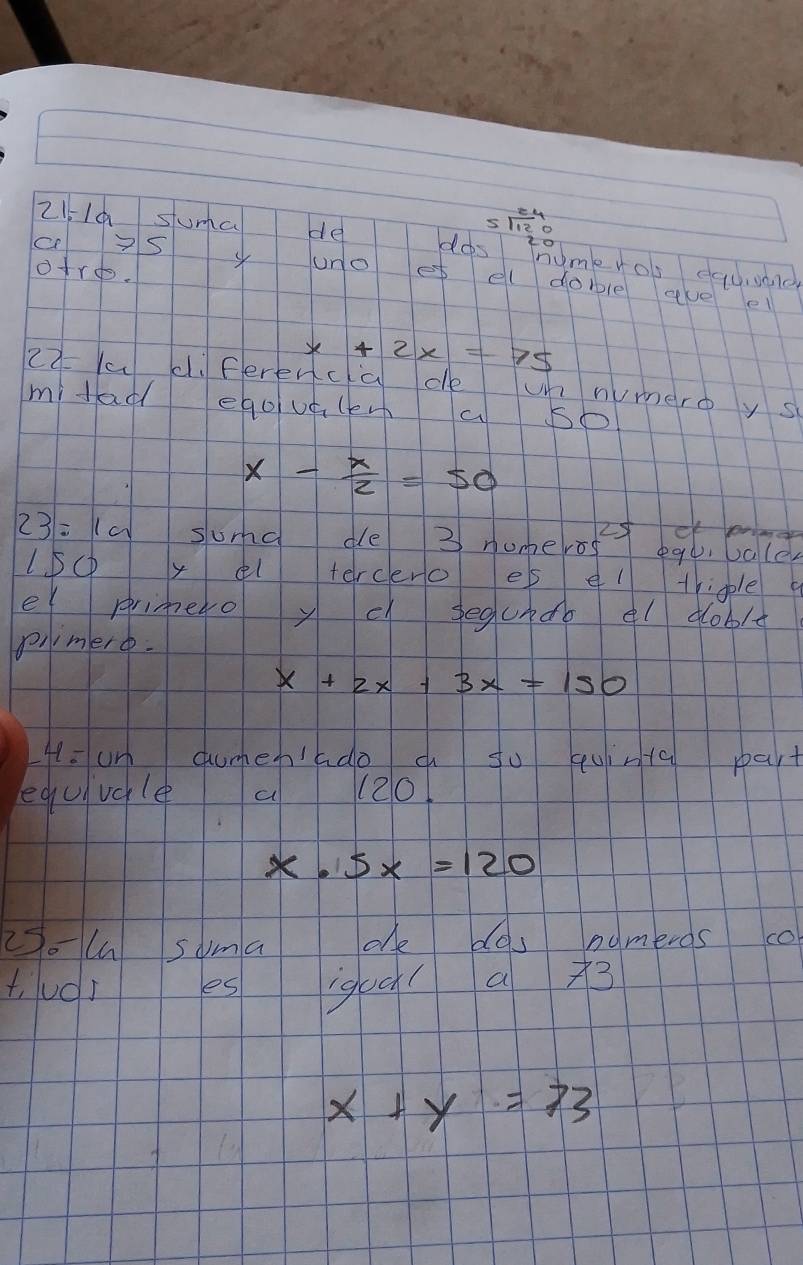 24
5√120
20
21- la suma de dos numeros
a 75 y uno es el doble que el
otro.
x + 2x = 75
22- la diferencia de un numero y s
mitad equivalen a 50
x - x/2 = 50
23= la suma de 3 numeros 25 equivalen
150 y el tercero es el triple q
el primero y el segundo el doble
primero.
x + 2x + 3x = 150
4= un aumentado a su quinta part
equivale a 120.
x . 5x = 120
25.- la suma de dos numeros co
tivos es igual a 73
x + y = 73